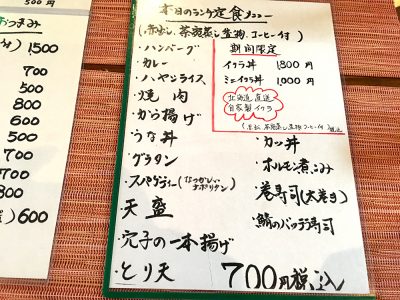 500円
おつまみ
1500
700
500
800
600
500
700
700
800
600
本日のランチ定食メニュー
(赤出し、茶碗蒸し、煮物、コーヒー付)
・ハンバーグ
・カレー
・ハヤシライス
・焼肉
・から揚げ
・うな丼
・グラタン
・スパゲティー(なつかしいナポリタン)
・天盛
・穴子の一本揚げ
・とり天
期間限定
イクラ丼 1,800円
ミニイクラ丼 1,000円
北海道直送
自家製イクラ
(赤出し、茶碗蒸し、煮物、コーヒー付)税込
・カツ丼
・ホルモン煮こみ
・巻寿司(太巻き)
・鯖のバッテラ寿司
700円税込